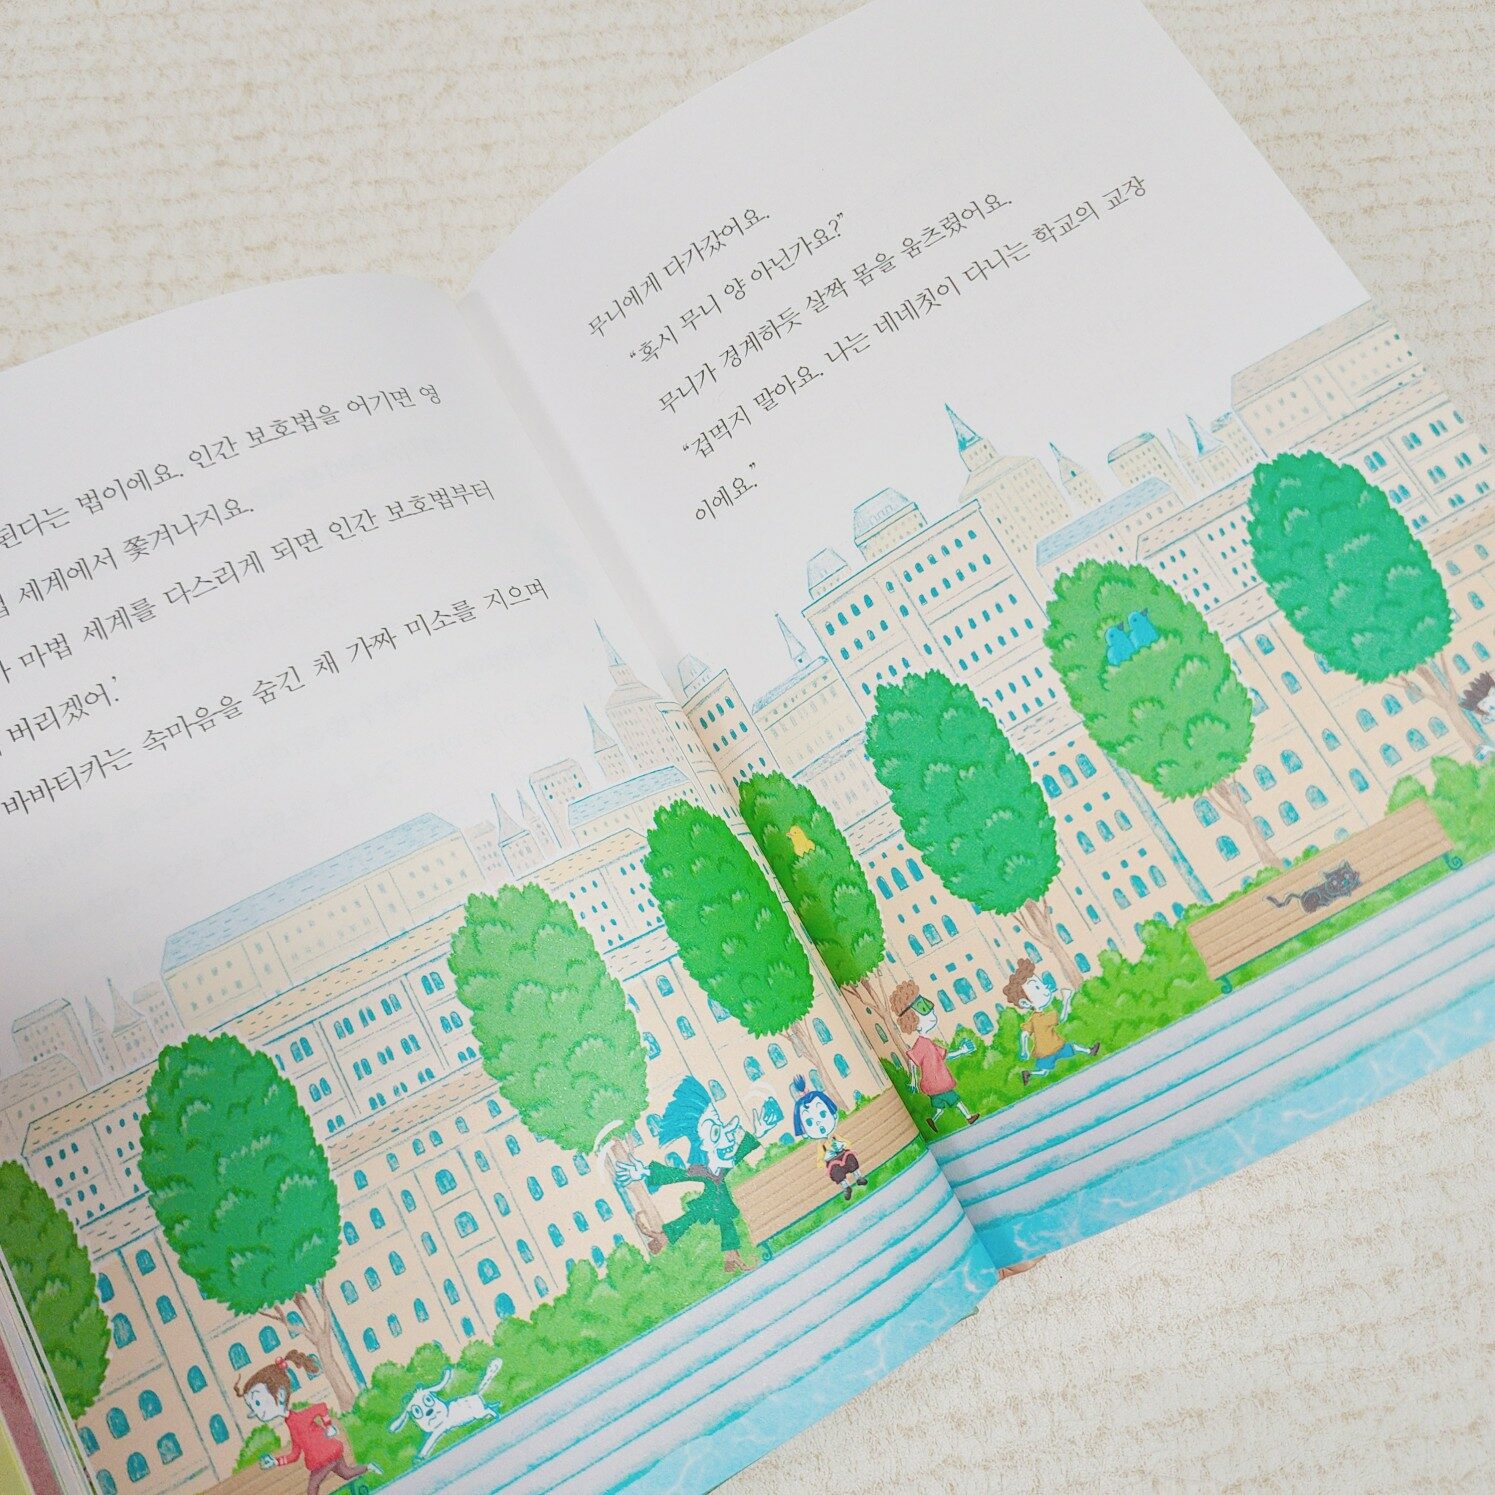 된다는 법이에요. 인간 보호법을 어기면 영
세계에서 쫓겨나지요.
마법 세계를 다스리게 되면 인간 보호법부터
버리겠어.’
바바티카는 속마음을 숨긴 채 가짜 미소를 지으며
무니에게 다가갔어요.
“혹시 무니 양 아닌가요?”
무니가 경계하듯 살짝 몸을 움츠렸어요.
“겁먹지 말아요. 나는 네네칫이 다니는 학교의 교장
이에요.”